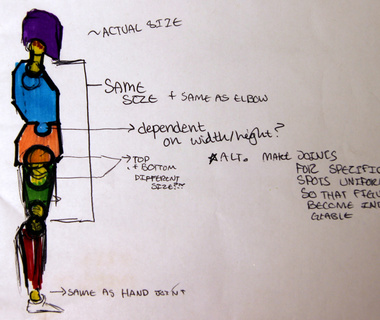 ~ACTUAL SIZE
SAME
SIZE + SAME AS ELBOW
dependent
on width/height?
TOP
+ BOTTOM
DIFFERENT
SIZE?
ALT. MAKE JOINTS
FOR SPECIFIC
SPOTS UNIFORM
SO THAT
BECOME
SAME AS HAND JOINT